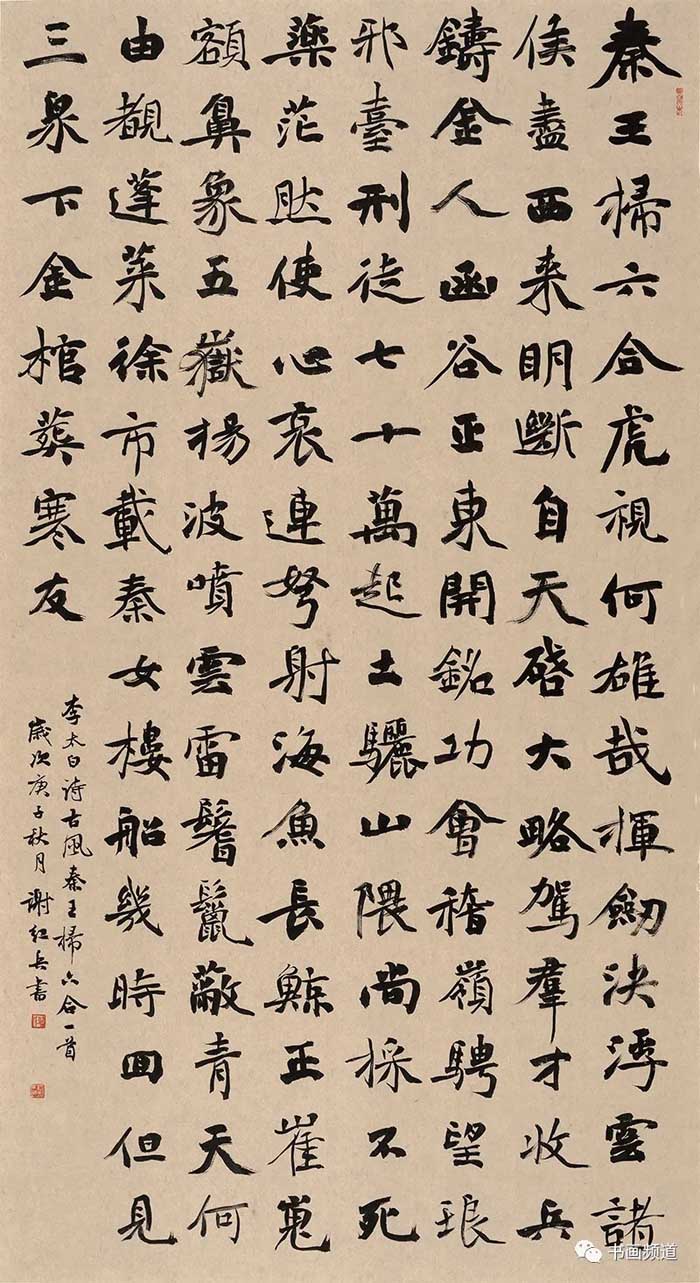 秦王掃六合虎視何雄哉揮劒決浮雲諸
侯盡西来明斷自天啓大略駕羣才收兵
鑄金人函谷正東開銘功會稽嶺騁望琅
邪臺刑徒七十萬起土驪山隈尚採不死
藥茫然使心哀連弩射海魚長鯨正崔嵬
額鼻象五嶽揚波噴雲雷鬐鬣蔽青天何
由覩蓬莱徐市載秦女樓船幾時回但見
三泉下金棺葬寒灰
李太白诗古風秦王掃六合一首
歲次庚子秋月謝红兵書
书画频道